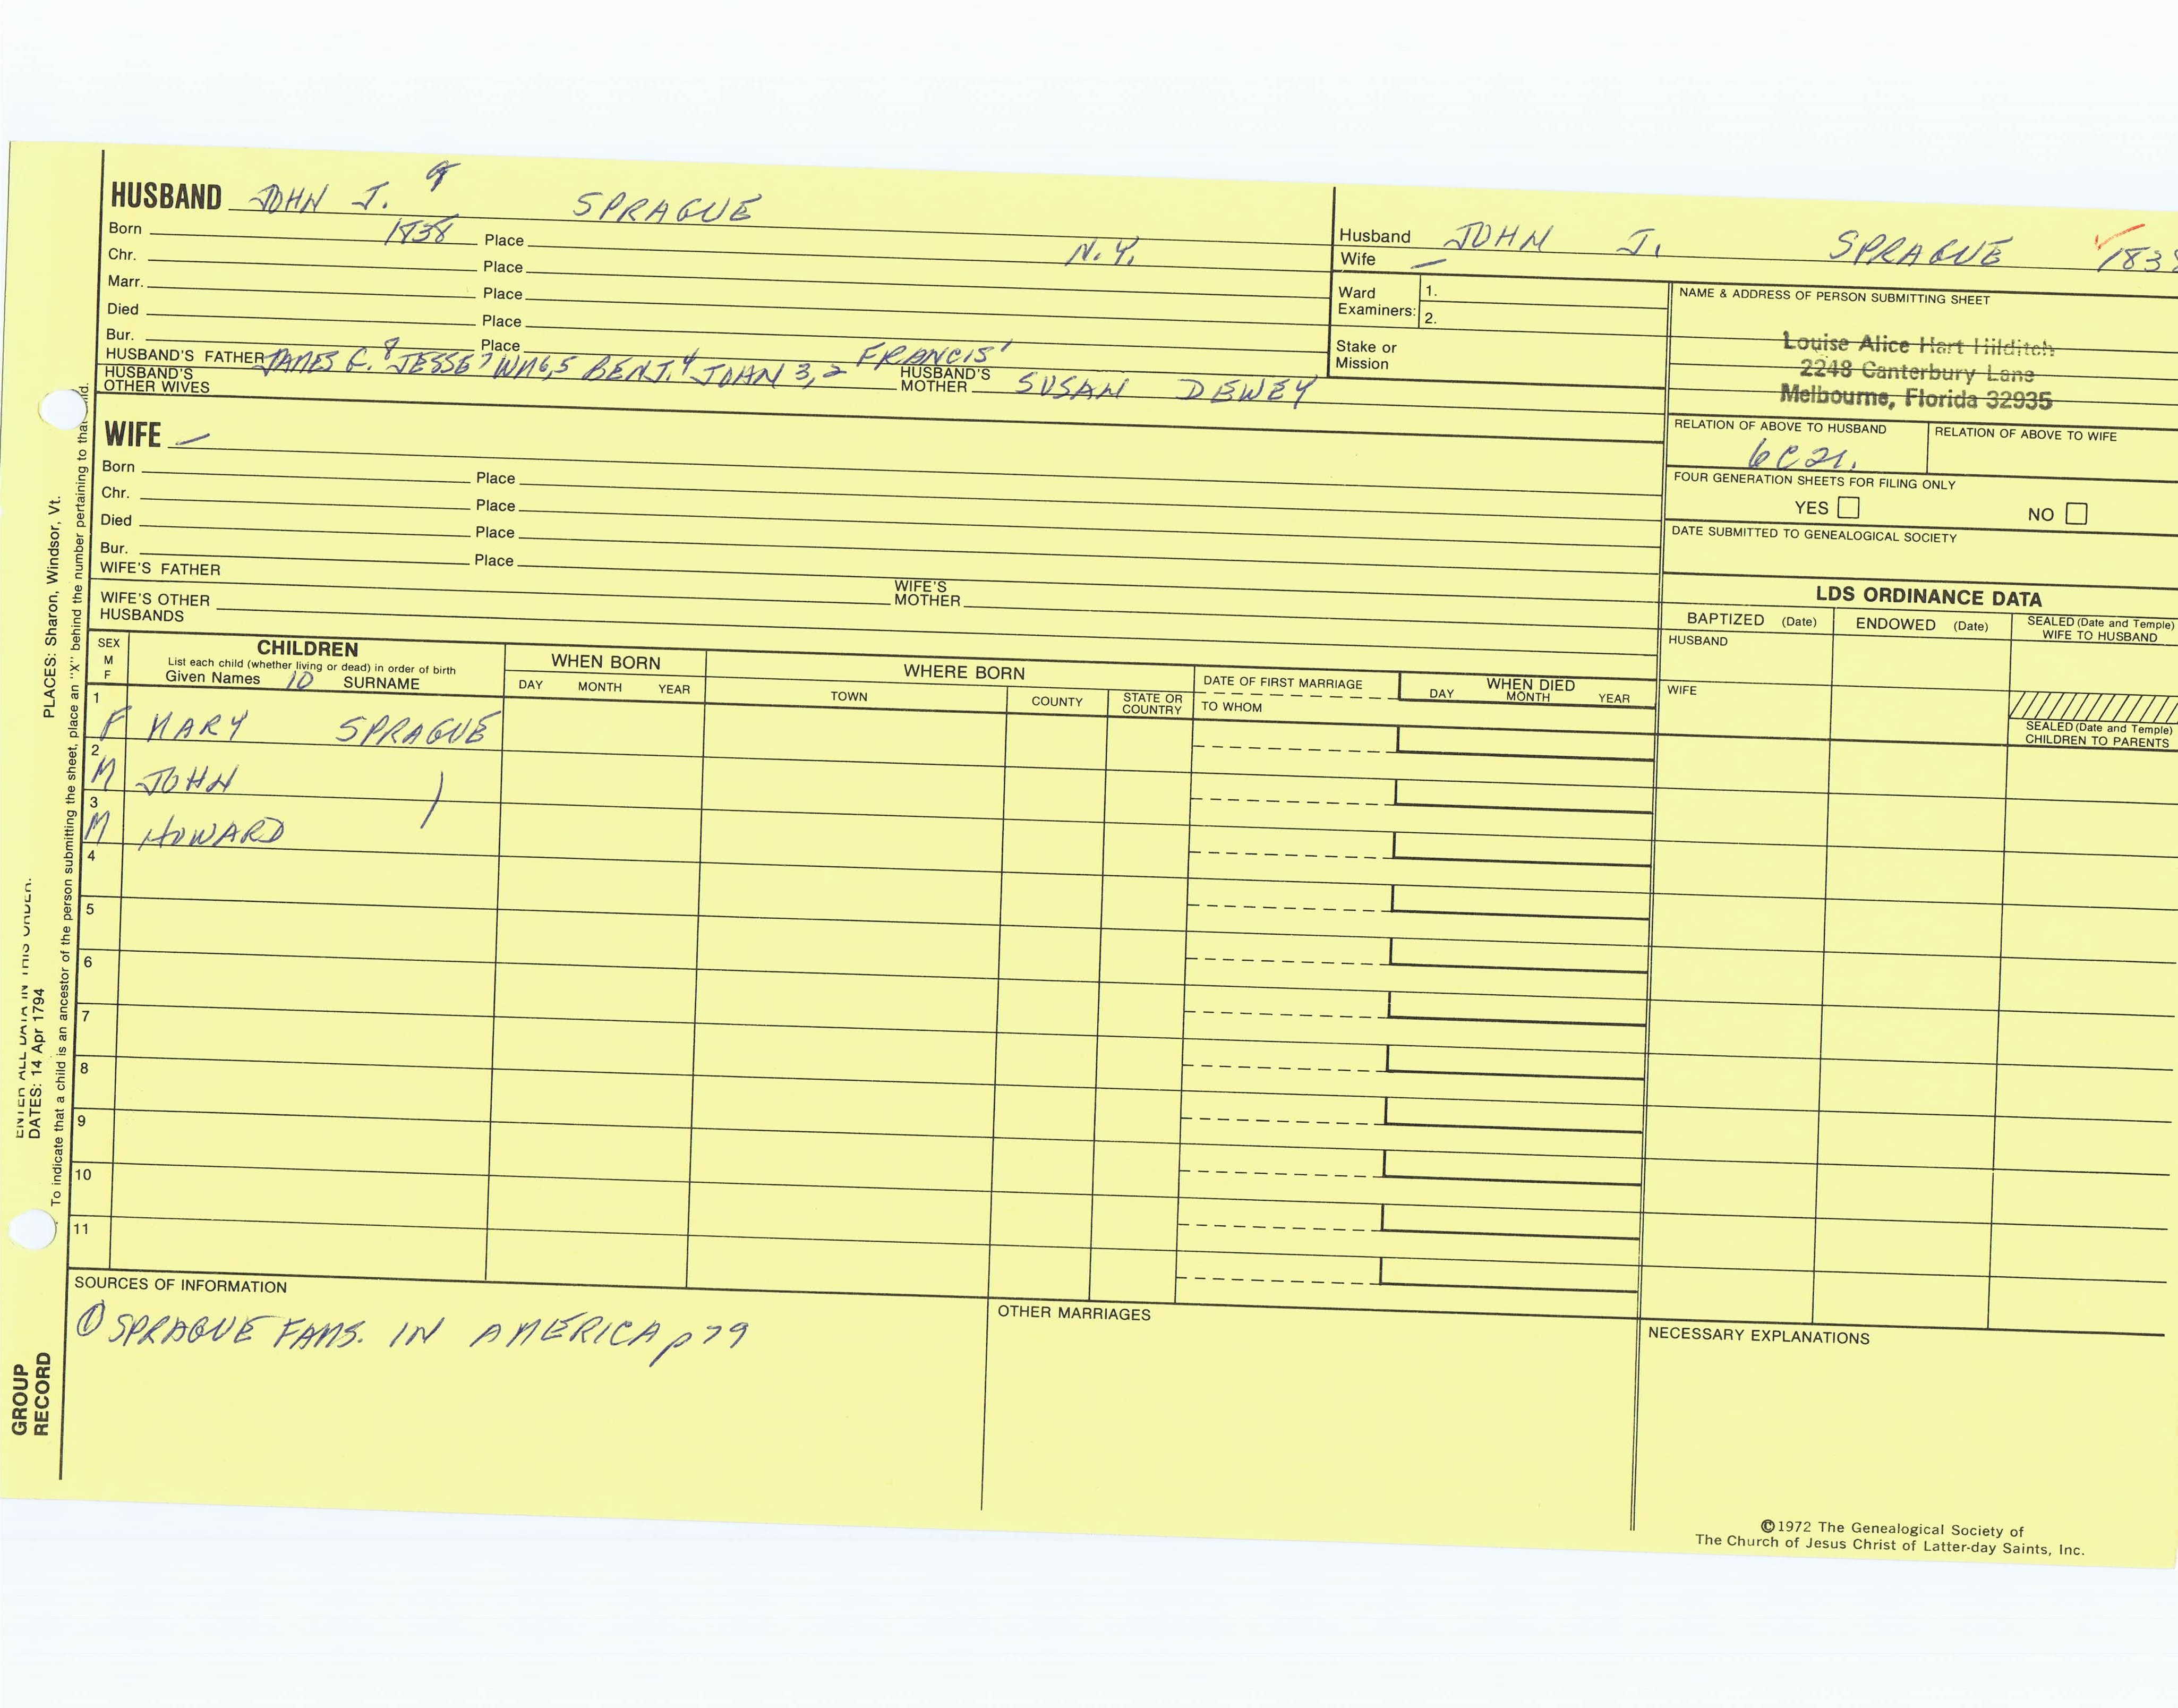 HUSBAND JOHN J. 9 SPRAGUE
Born 1838 Place N.Y.
Chr. Place
Marr. Place
Died Place
Bur. Place
HUSBAND'S FATHER JAMES G.8 JESSE7 WM6,5 BENJ.4 JOHN 3,2 FRANCIS1 HUSBAND'S MOTHER SUSAN DEWEY
HUSBAND'S OTHER WIVES
WIFE —
Born Place
Chr. Place
Died Place
Bur. Place
WIFE'S FATHER WIFE'S MOTHER
WIFE'S OTHER HUSBANDS
Husband JOHN J. SPRAGUE ✓1838
Wife —
Ward Examiners: 1.
2.
Stake or Mission
NAME & ADDRESS OF PERSON SUBMITTING SHEET
Louise Alice Hart Hilditch
2248 Canterbury Lane
Melbourne, Florida 32935
RELATION OF ABOVE TO HUSBAND RELATION OF ABOVE TO WIFE
6C2r.
FOUR GENERATION SHEETS FOR FILING ONLY
YES NO
DATE SUBMITTED TO GENEALOGICAL SOCIETY
LDS ORDINANCE DATA
BAPTIZED (Date) ENDOWED (Date) SEALED (Date and Temple) WIFE TO HUSBAND
HUSBAND
WIFE
SEALED (Date and Temple) CHILDREN TO PARENTS
SEX M F
CHILDREN
List each child (whether living or dead) in order of birth
Given Names 10 SURNAME
WHEN BORN
DAY MONTH YEAR
WHERE BORN
TOWN COUNTY STATE OR COUNTRY
DATE OF FIRST MARRIAGE
TO WHOM
WHEN DIED
DAY MONTH YEAR
1 F MARY SPRAGUE
2 M JOHN )
3 M HOWARD
4
5
6
7
8
9
10
11
SOURCES OF INFORMATION
① SPRAGUE FAMS. IN AMERICA p 79
OTHER MARRIAGES
NECESSARY EXPLANATIONS
©1972 The Genealogical Society of
The Church of Jesus Christ of Latter-day Saints, Inc.
GROUP RECORD
ENTER ALL DATA IN THIS ORDER.
DATES: 14 Apr 1794 PLACES: Sharon, Windsor, Vt.
To indicate that a child is an ancestor of the person submitting the sheet, place an "X" behind the number pertaining to that